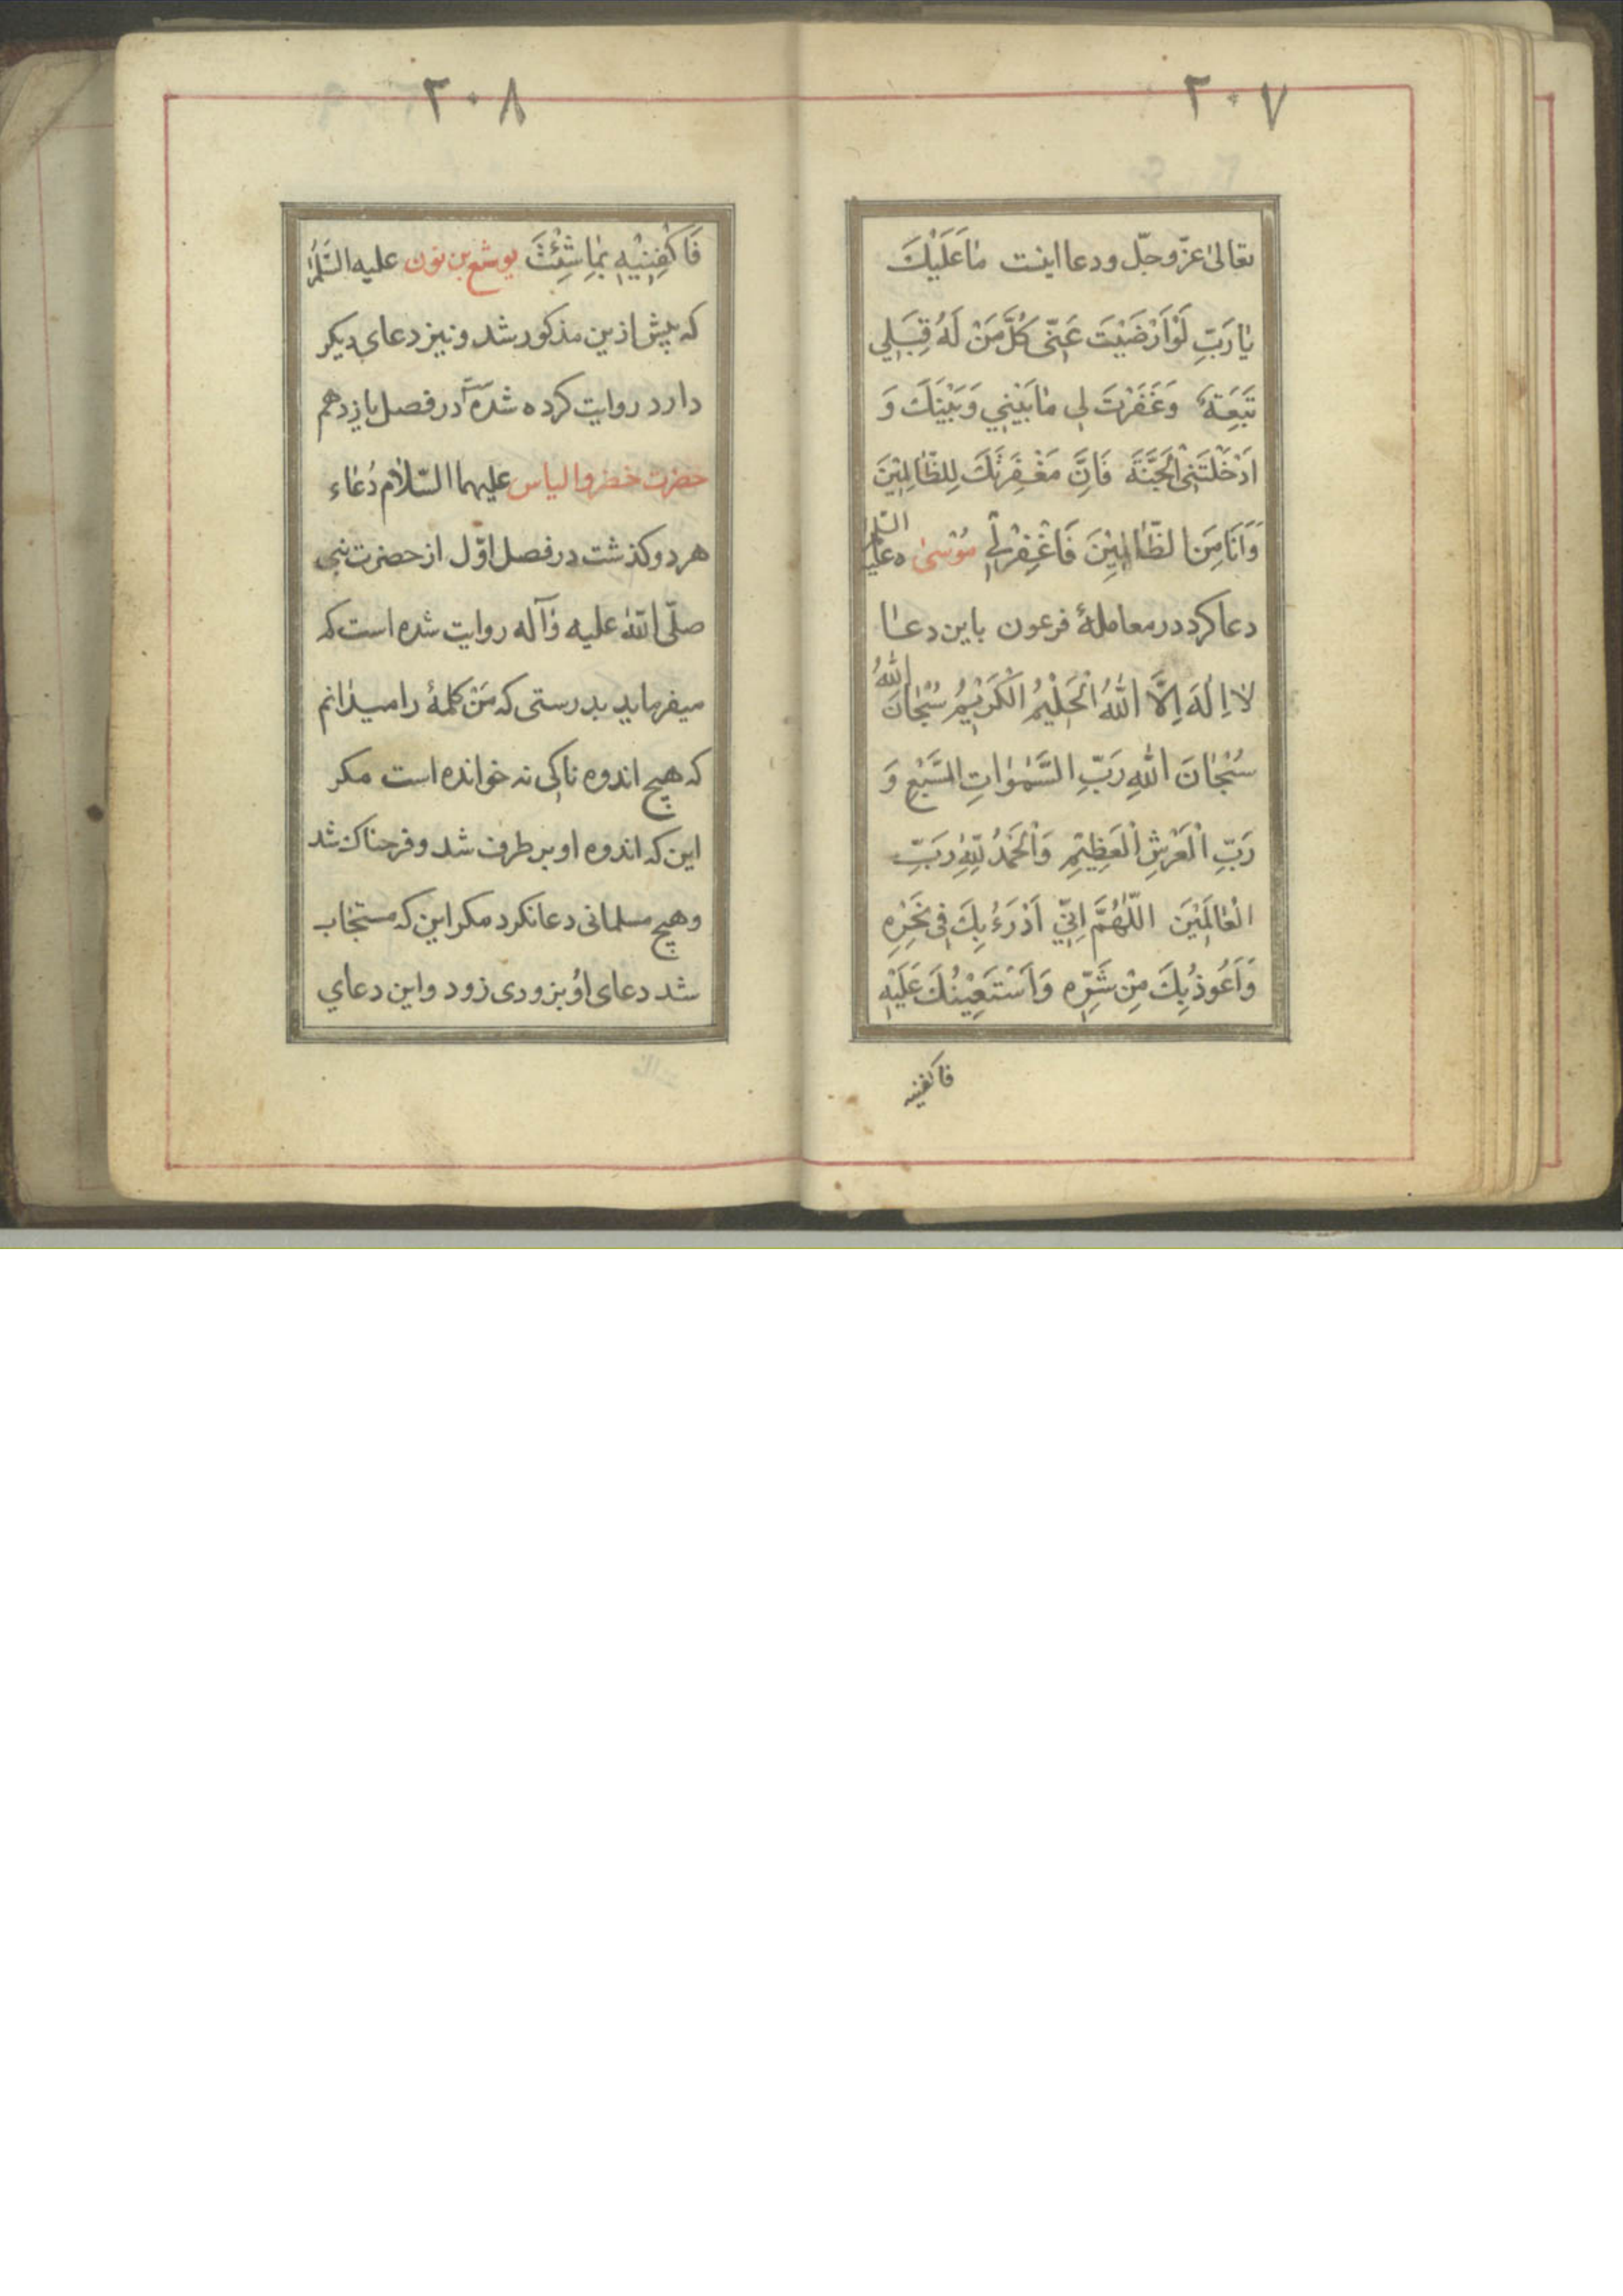 ٢٠٧
تعالیٰ عزّ و جلّ و دعا اینست مٰا عَلَیْكَ
یٰا رَبِّ لَوْ اَرْضَیْتَ عَنّی کُلَّ مَنْ لَهُ قِبَلِی
تَبِعَةٌ وَ غَفَرْتَ لی مٰا بَیْنِی وَ بَیْنَكَ وَ
اَدْخَلْتَنِی الْجَنَّةَ فَاِنَّ مَغْفِرَتَكَ لِلظّٰالِمِیْنَ
وَ اَنَا مِنَ الظّٰالِمِیْنَ فَاغْفِرْ لِی مُوْسیٰ علیه السّلام
دعا کرد در معاملهٔ فرعون باین دعا
لاٰ اِلٰهَ اِلاَّ اللّٰهُ الْحَلِیْمُ الْکَرِیْمُ سُبْحٰانَ اللّٰهُ
سُبْحٰانَ اللّٰهِ رَبِّ السَّمٰوٰاتِ السَّبْعِ وَ
رَبِّ الْعَرْشِ الْعَظِیْمِ وَ الْحَمْدُ لِلّٰهِ رَبِّ
الْعٰالَمِیْنَ اللّٰهُمَّ اِنِّی اَدْرَءُ بِكَ فِی نَحْرِهِ
وَ اَعُوذُ بِكَ مِنْ شَرِّهِ وَ اَسْتَعِیْنُكَ عَلَیْهِ
فاکفنیه
٢٠٨
فَاکْفِنِیْهِ بِمٰا شِئْتَ یوشع بن نون علیه السّلام
که پیش ازین مذکور شد و نیز دعای دیکر
دارد روایت کرده شده در فصل یازدهم
حضرت خضر و الیاس علیهما السّلام دُعٰاء
هر دو کذشت در فصل اوّل از حضرت نبی
صلّی اللّٰه علیه وٰآله روایت شده است که
میفرماید بدرستی که مَن کلمهٔ را میدٰانم
که هیچ اندوه ناکی نه خوانده است مکر
این که اندوه او بر طرف شد و فرحناك شد
و هیچ مسلمانی دعا نکرد مکر این که مستجٰاب
شد دعای اوُ بزودی زود و این دعاي